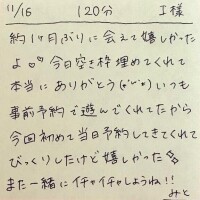 11/16 120分 I様
約1ヶ月ぶりに会えて嬉しかった
よ♡♡ 今日空き枠埋めてくれて
本当にありがとう(*´`*)いつも
事前予約で遊んでくれてたから
今回初めて当日予約してきてくれて
びっくりしたけど嬉しかった
また一緒にイチャイチャしようね!!
みと